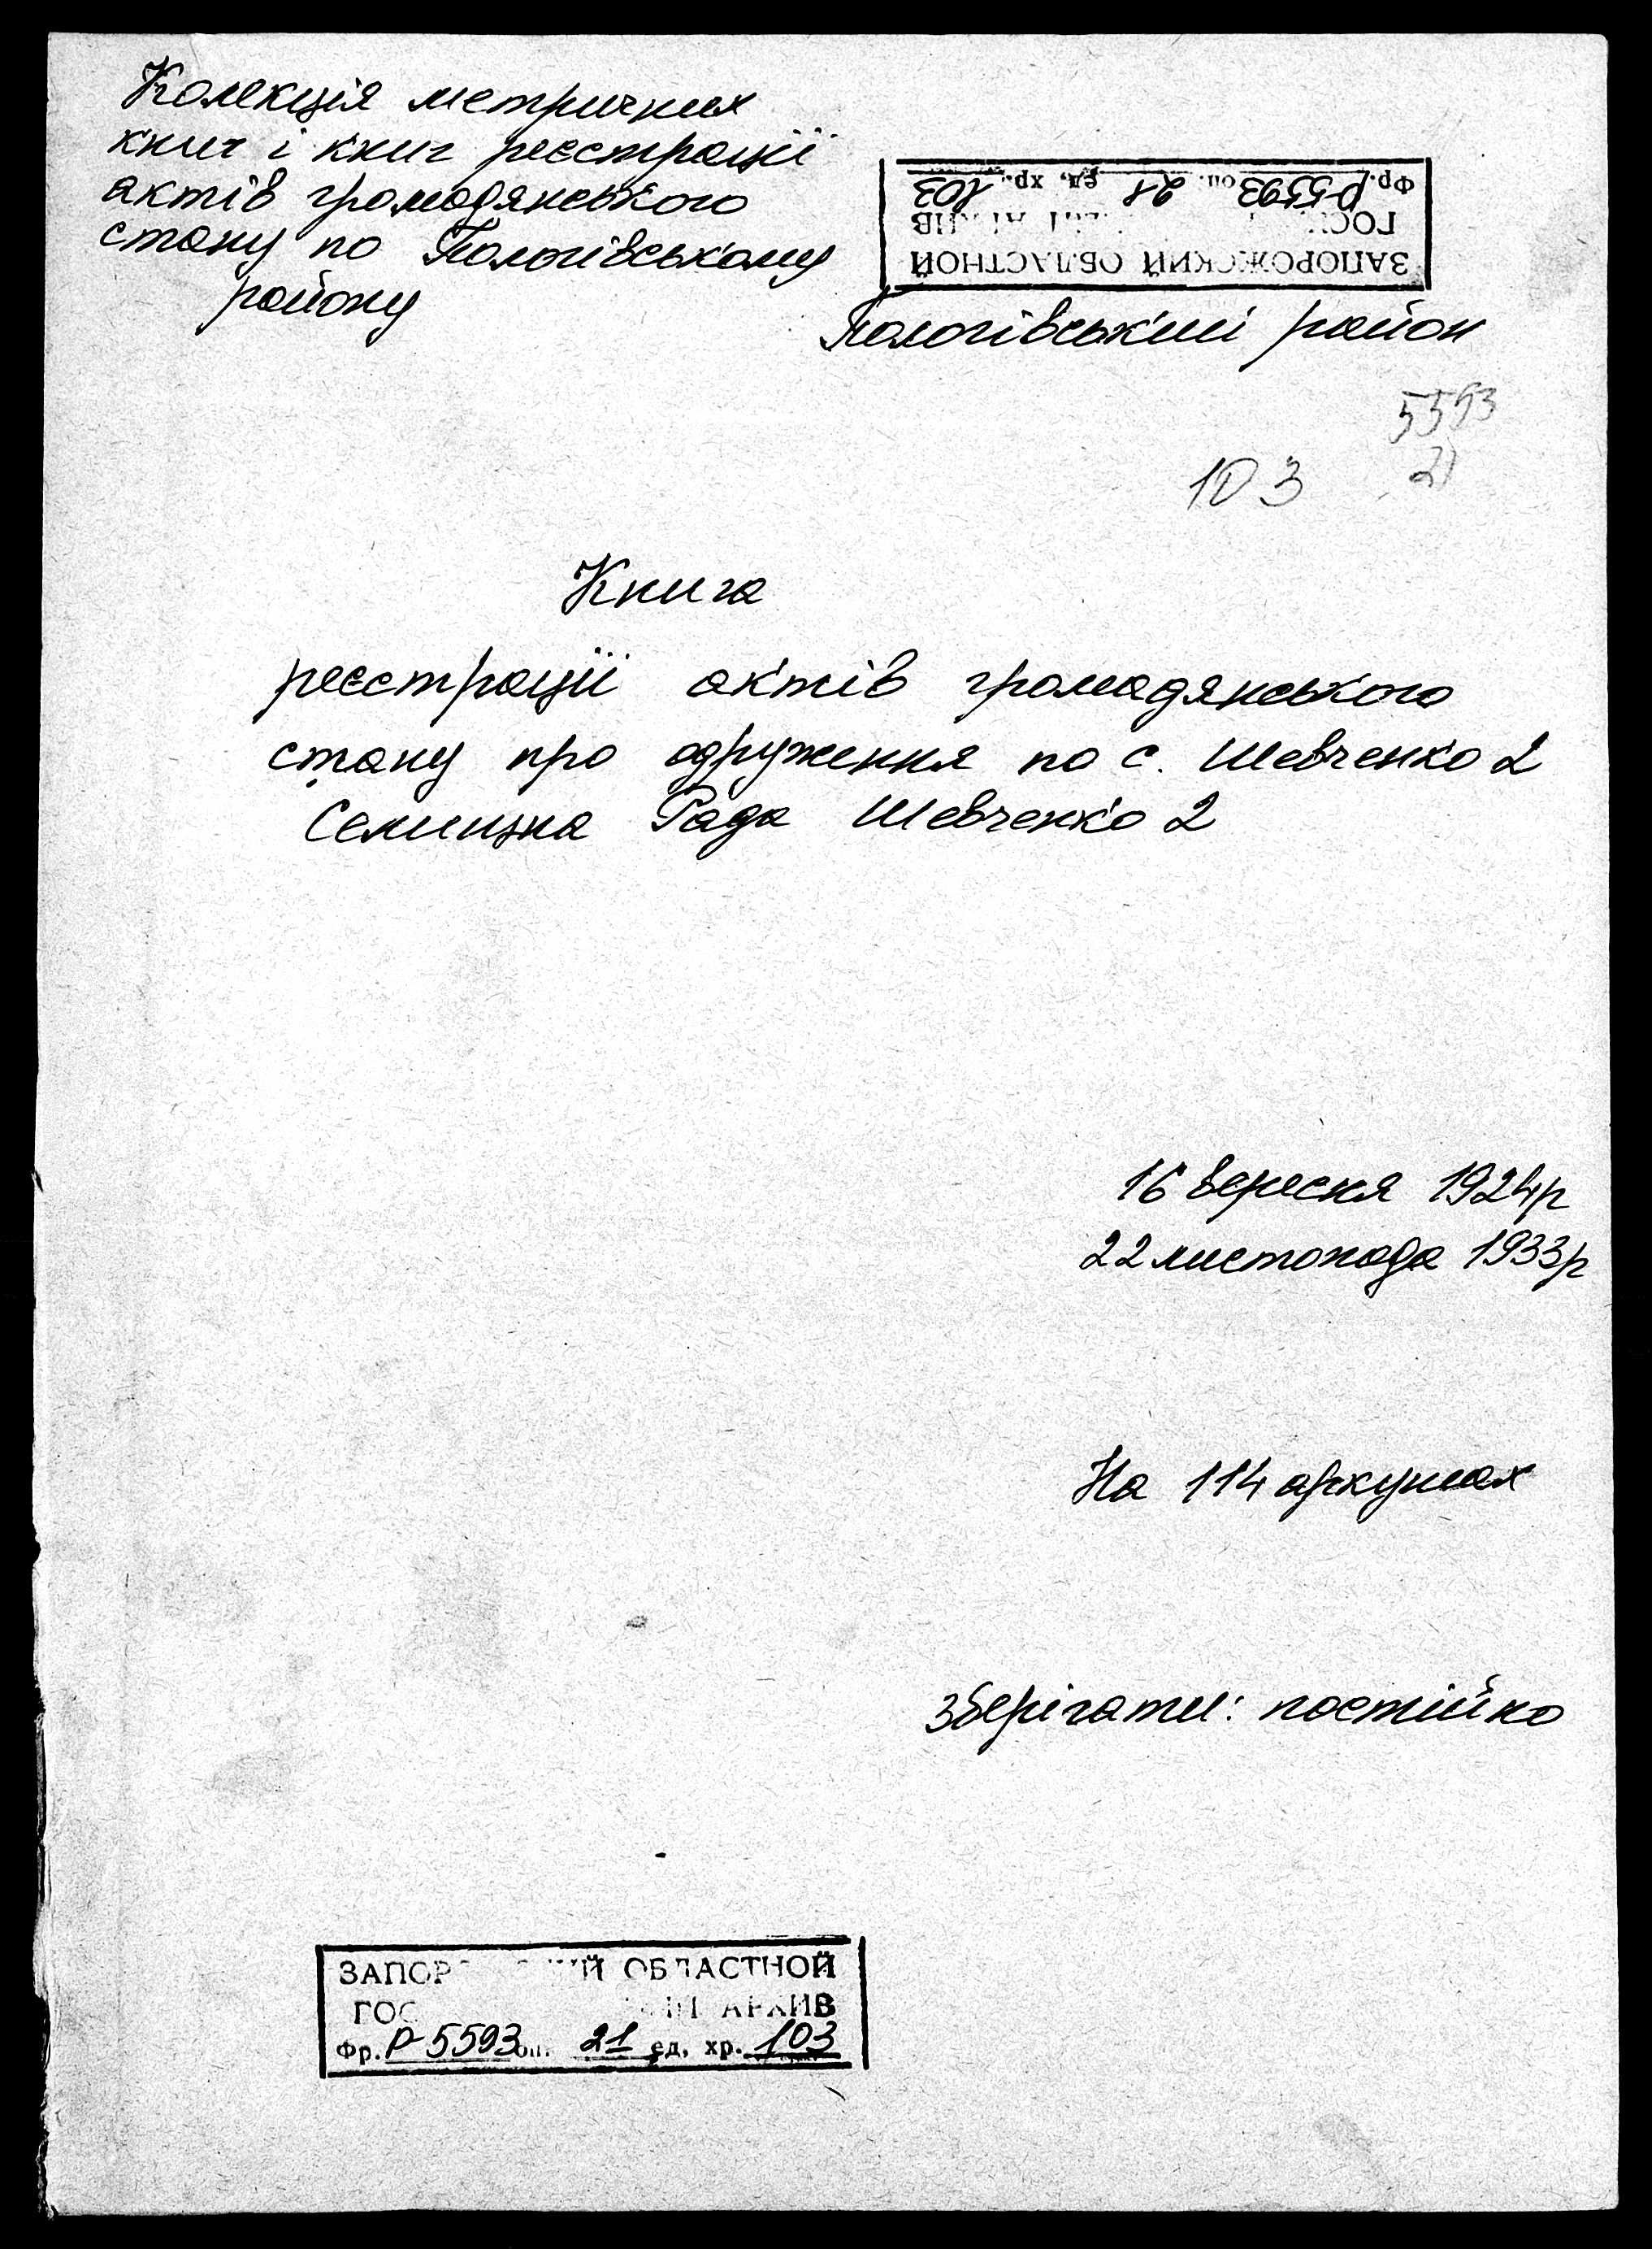 Колекція метричних
книг і книг реєстрації
актів громадянського
стану по Пологівському
району
ЗАПОРОЖСКИЙ ОБЛАСТНОЙ
Фр. Р-5593 оп. 21 ед. хр. 103
Пологівський район
5593
21
103
Книга
реєстрації актів громадянського
стану про одруження по с. Шевченко 2
Селищна Рада Шевченко 2
16 вересня 1924р
22 листопада 1933р
На 114 аркушах
зберігати: постійно
ОБЛАСТНОЙ
АРХИВ
Фр. Р-5593 оп. 21 ед. хр. 103